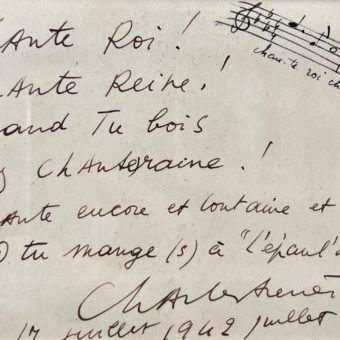 chan. te roi ch
ANTE ROI !
ANTE REINE !
AND TU bois
CHANTERAINE !
ANTE encore et lontaine et
tu mange (s) à "l'épaul'
Charles Trenet
17 juillet 1942 juillet